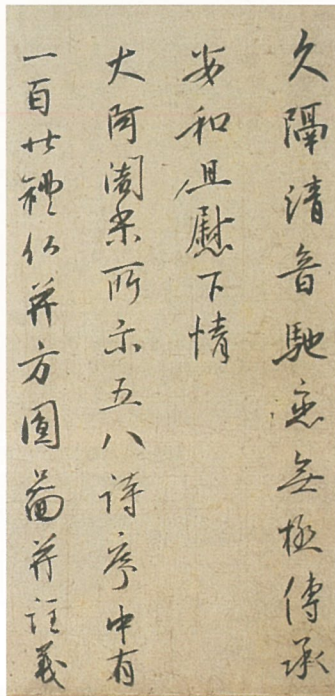 久隔清音馳恋無極傳承
安和且慰下情
大阿闍梨所示五八詩序中有
一百廿禮仏并方圓啚并註義